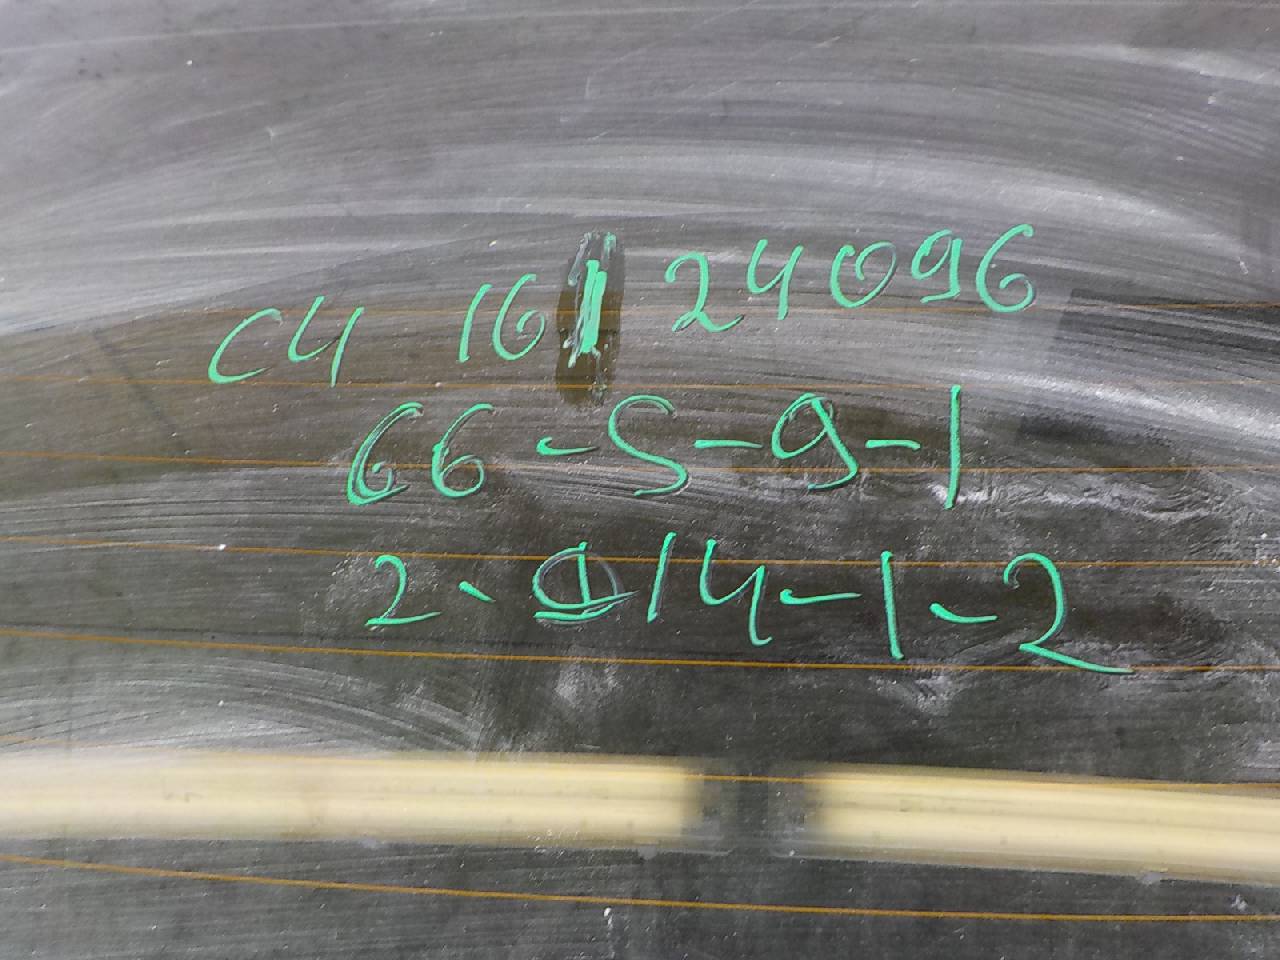 C4 161 24096
66-5-9-1
2-114-1-2